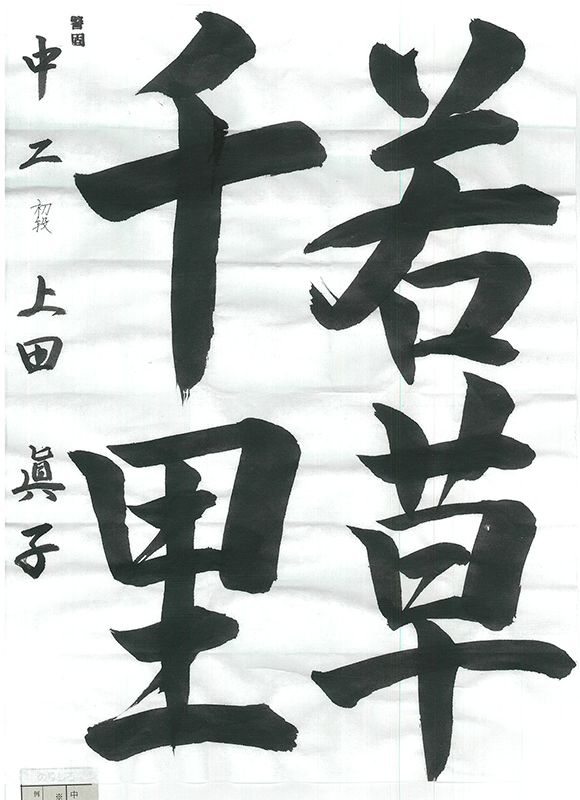 若草
千里
警固
中二 初段 上田 眞子
例 ※ 中